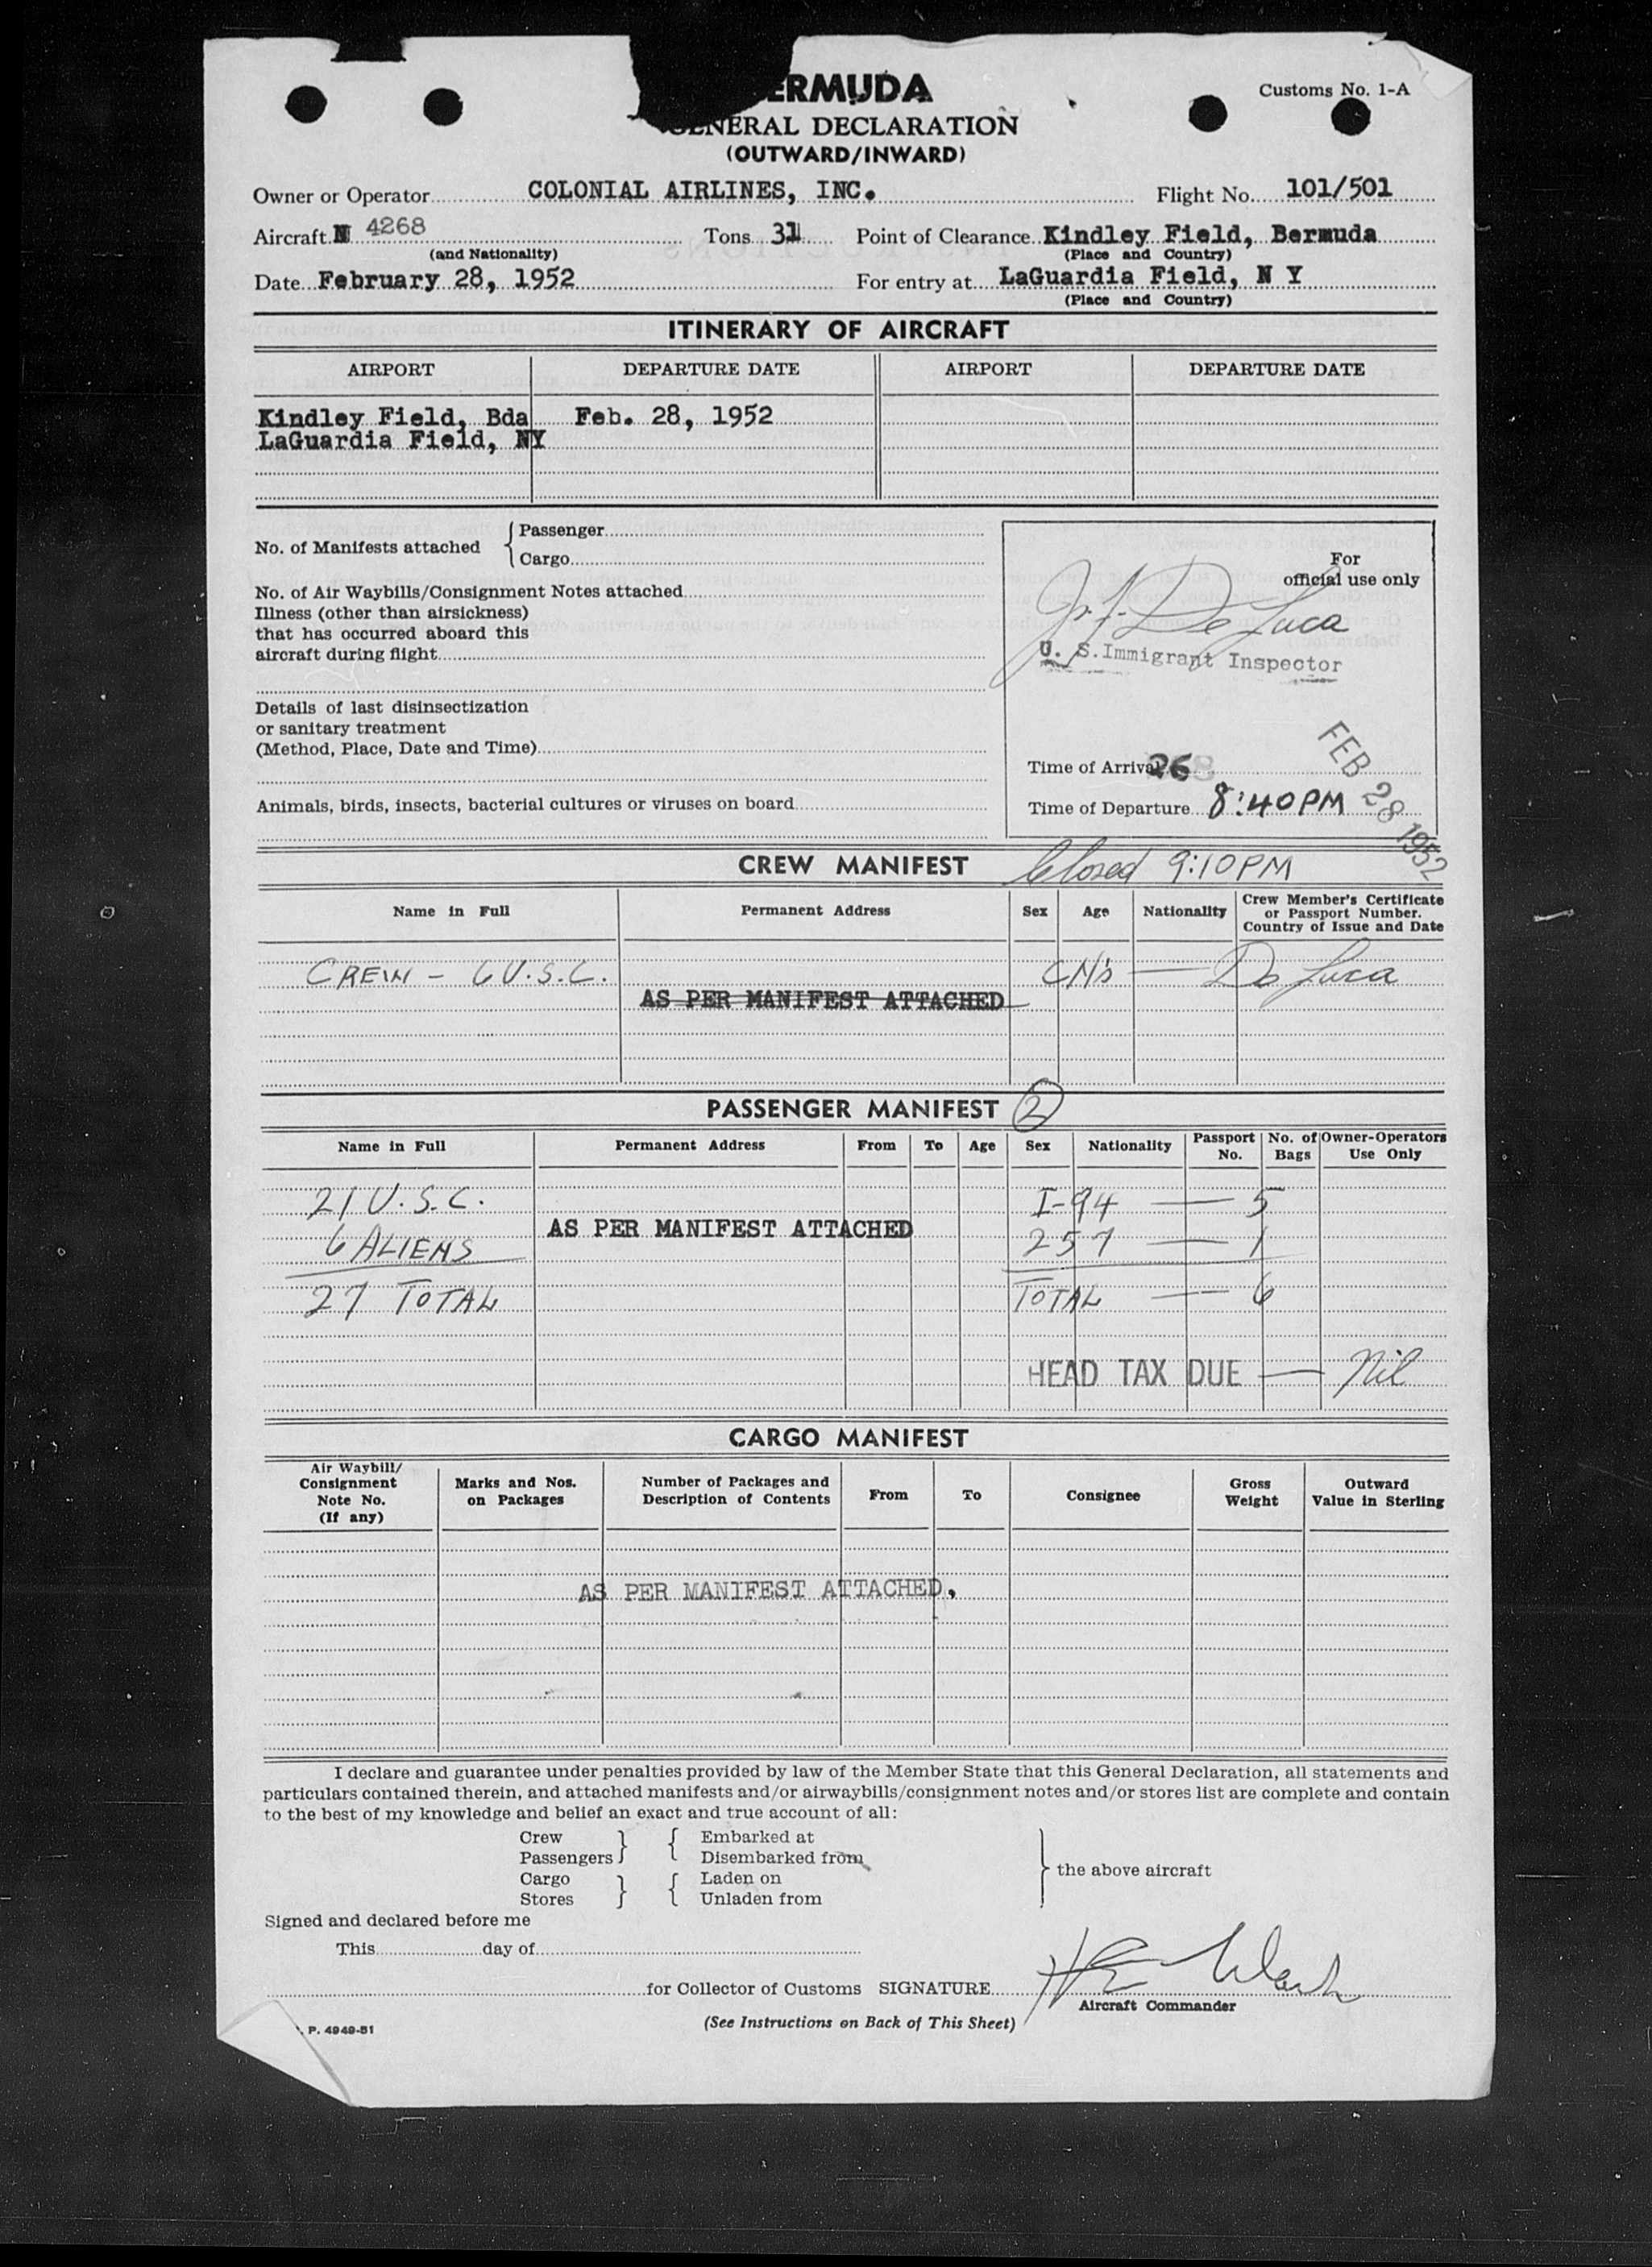 ERMUDA
Customs No. 1-A
GENERAL DECLARATION
(OUTWARD/INWARD)
Owner or Operator COLONIAL AIRLINES, INC. Flight No. 101/501
Aircraft N 4268 Tons 31 Point of Clearance Kindley Field, Bermuda
(and Nationality) (Place and Country)
Date February 28, 1952 For entry at LaGuardia Field, N Y
(Place and Country)
ITINERARY OF AIRCRAFT
AIRPORT DEPARTURE DATE AIRPORT DEPARTURE DATE
Kindley Field, Bda Feb. 28, 1952
LaGuardia Field, NY
No. of Manifests attached { Passenger
Cargo
No. of Air Waybills/Consignment Notes attached
Illness (other than airsickness)
that has occurred aboard this
aircraft during flight
Details of last disinsectization
or sanitary treatment
(Method, Place, Date and Time)
Animals, birds, insects, bacterial cultures or viruses on board
For
official use only
De Luca
U. S. Immigrant Inspector
FEB 28 1952
Time of Arrival 26
Time of Departure 8:40PM
CREW MANIFEST Closed 9:10PM
Name in Full Permanent Address Sex Age Nationality Crew Member's Certificate
or Passport Number.
Country of Issue and Date
CREW - 6 U.S.C. CM's — De Luca
AS PER MANIFEST ATTACHED
PASSENGER MANIFEST 2
Name in Full Permanent Address From To Age Sex Nationality Passport No. No. of Bags Owner-Operators Use Only
21 U.S.C. I-94 — 5
AS PER MANIFEST ATTACHED
6 ALIENS 257 — 1
27 TOTAL TOTAL — 6
HEAD TAX DUE — Nil
CARGO MANIFEST
Air Waybill/
Consignment
Note No.
(If any)
Marks and Nos.
on Packages
Number of Packages and
Description of Contents
From To Consignee
Gross
Weight
Outward
Value in Sterling
AS PER MANIFEST ATTACHED.
I declare and guarantee under penalties provided by law of the Member State that this General Declaration, all statements and
particulars contained therein, and attached manifests and/or airwaybills/consignment notes and/or stores list are complete and contain
to the best of my knowledge and belief an exact and true account of all:
Crew } { Embarked at
Passengers } { Disembarked from
} the above aircraft
Cargo } { Laden on
Stores } { Unladen from
Signed and declared before me
This day of
for Collector of Customs SIGNATURE
Aircraft Commander
(See Instructions on Back of This Sheet)
P. 4949-51